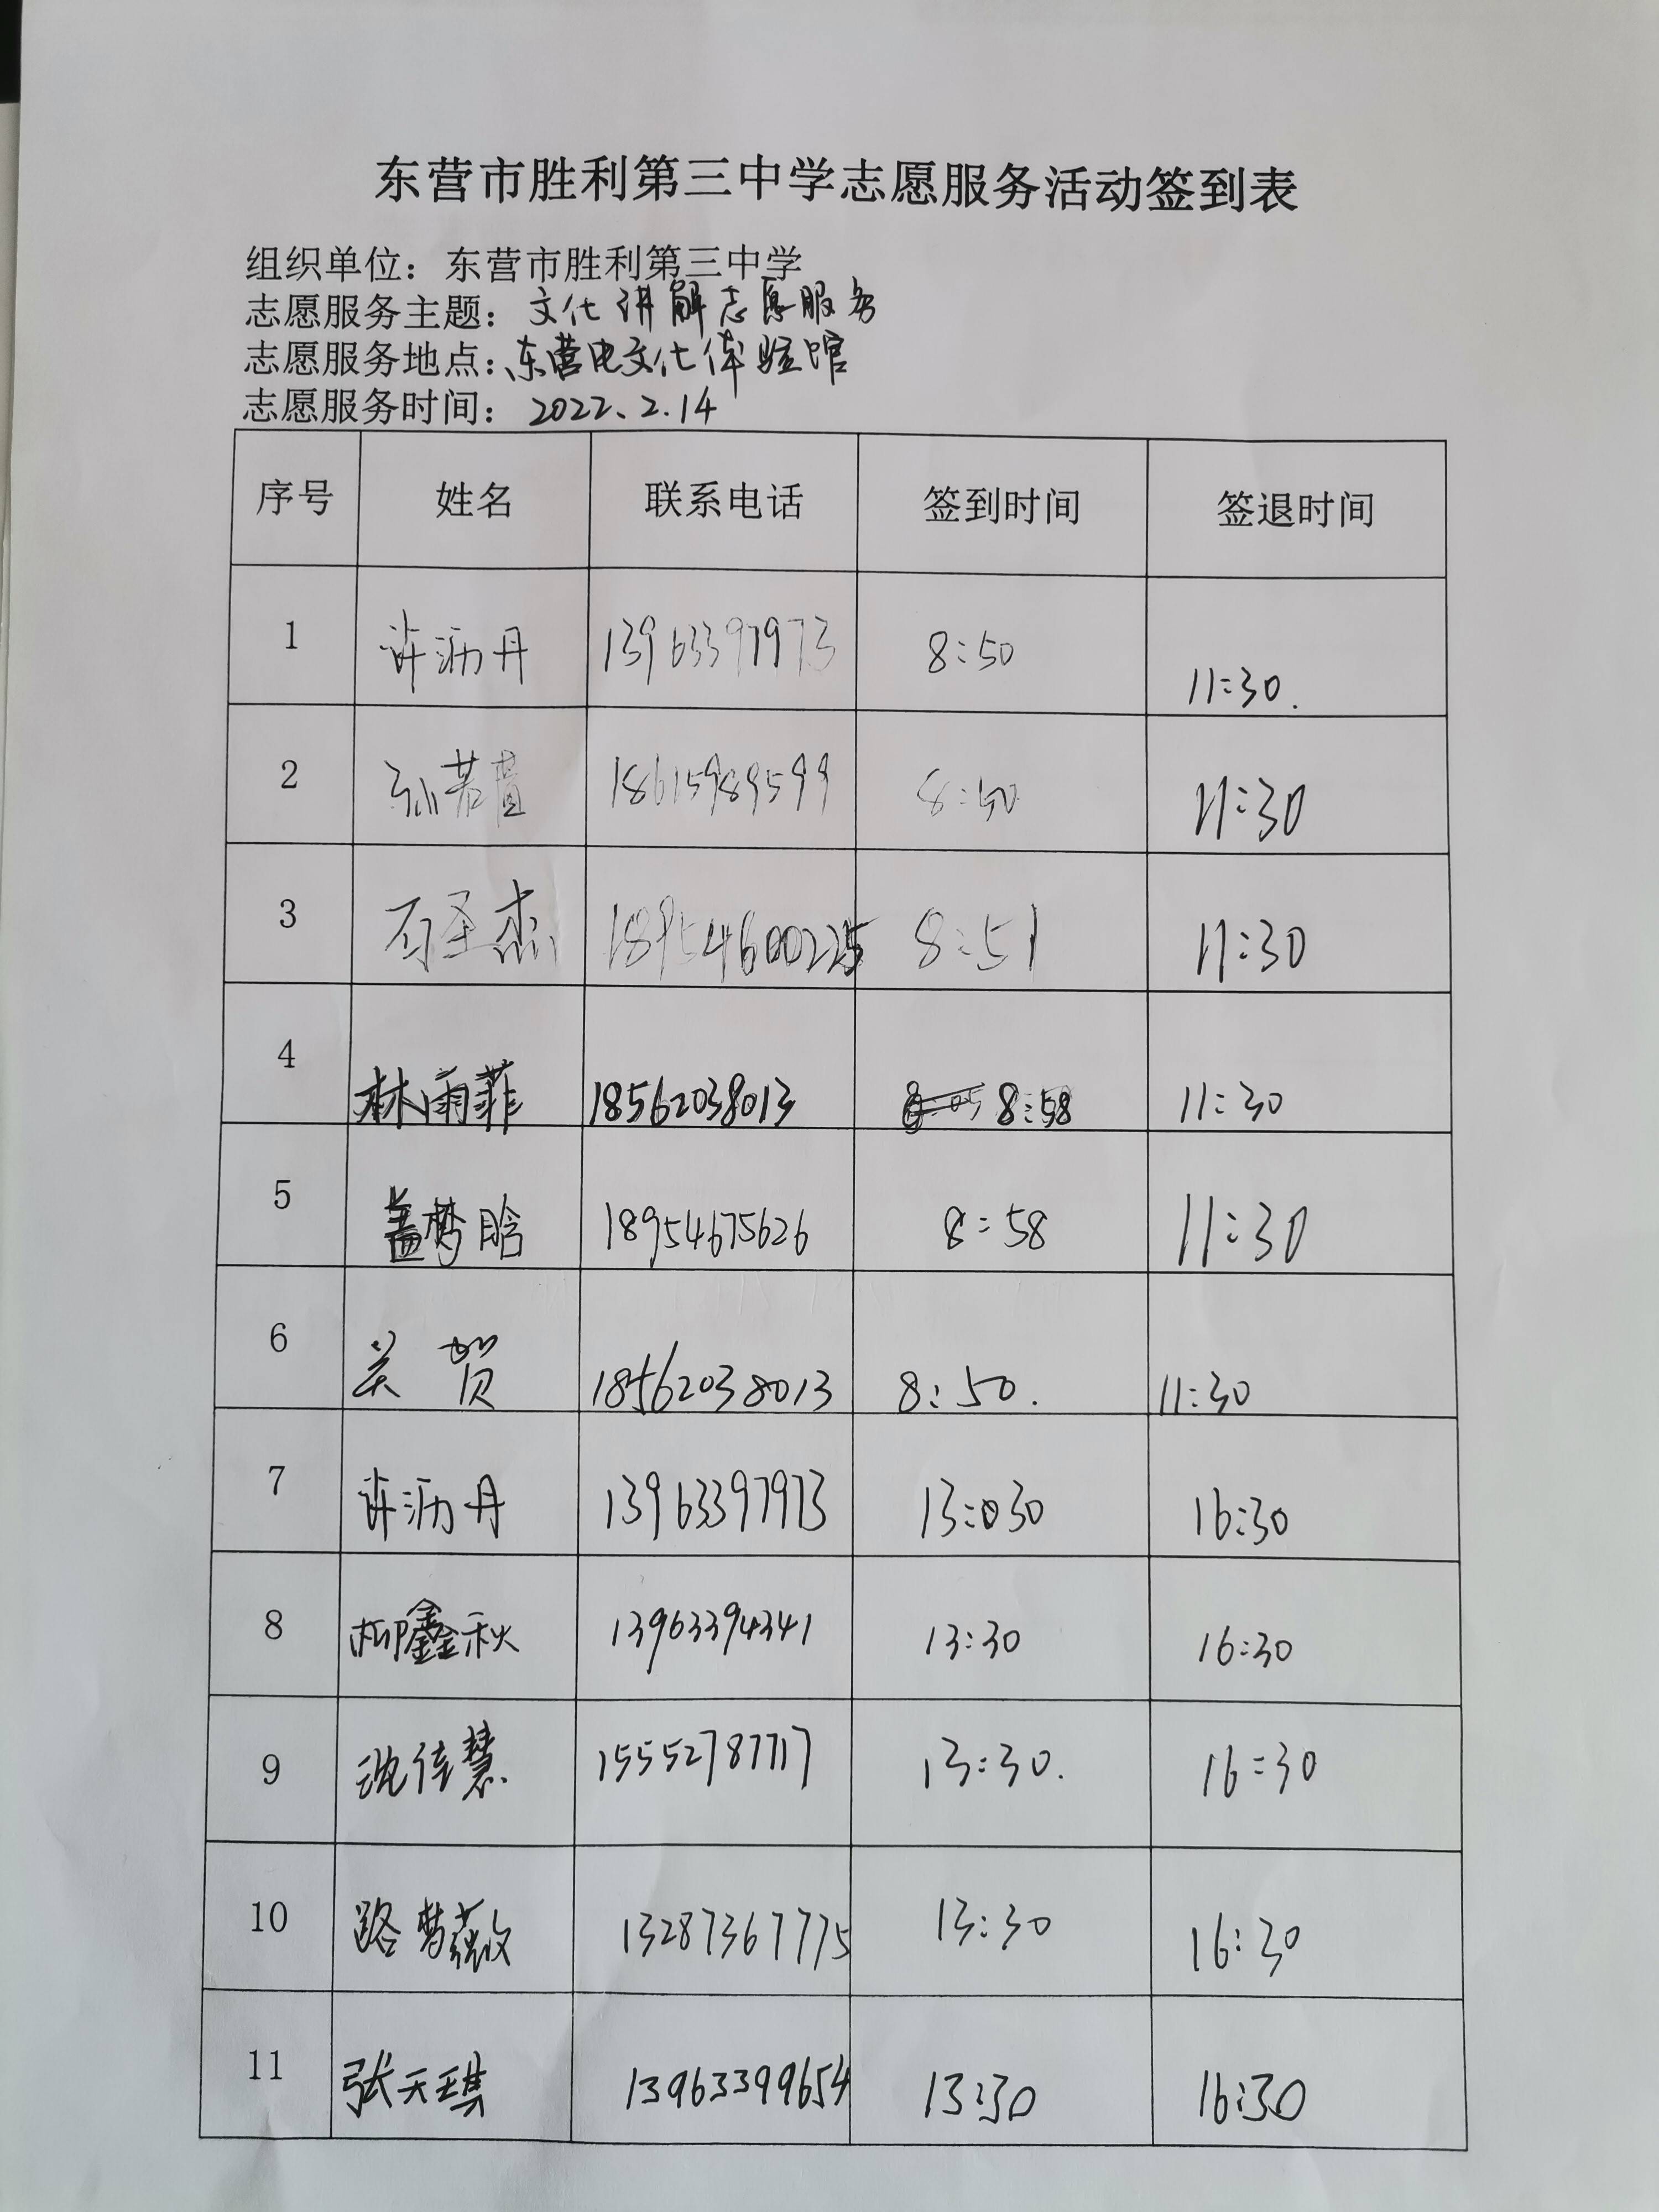 东营市胜利第三中学志愿服务活动签到表
组织单位：东营市胜利第三中学
志愿服务主题：文化讲解志愿服务
志愿服务地点：东营电文化体验馆
志愿服务时间：2022、2.14
序号 姓名 联系电话 签到时间 签退时间
1 许沥丹 13963397973 8:50 11:30.
2 孙若萱 18615989599 8:50 11:30
3 石圣杰 18954600225 8:51 11:30
4 林雨菲 18562038013 8:58 11:30
5 盖梦晗 18954675626 8:58 11:30
6 关贺 18562038013 8:50. 11:30
7 许沥丹 13963397973 13:030 16:30
8 柳鑫秋 13963394341 13:30 16:30
9 沈佳慧 15552787717 13:30. 16:30
10 路梦薇 13287367775 13:30 16:30
11 张天琪 13963399654 13:30 16:30